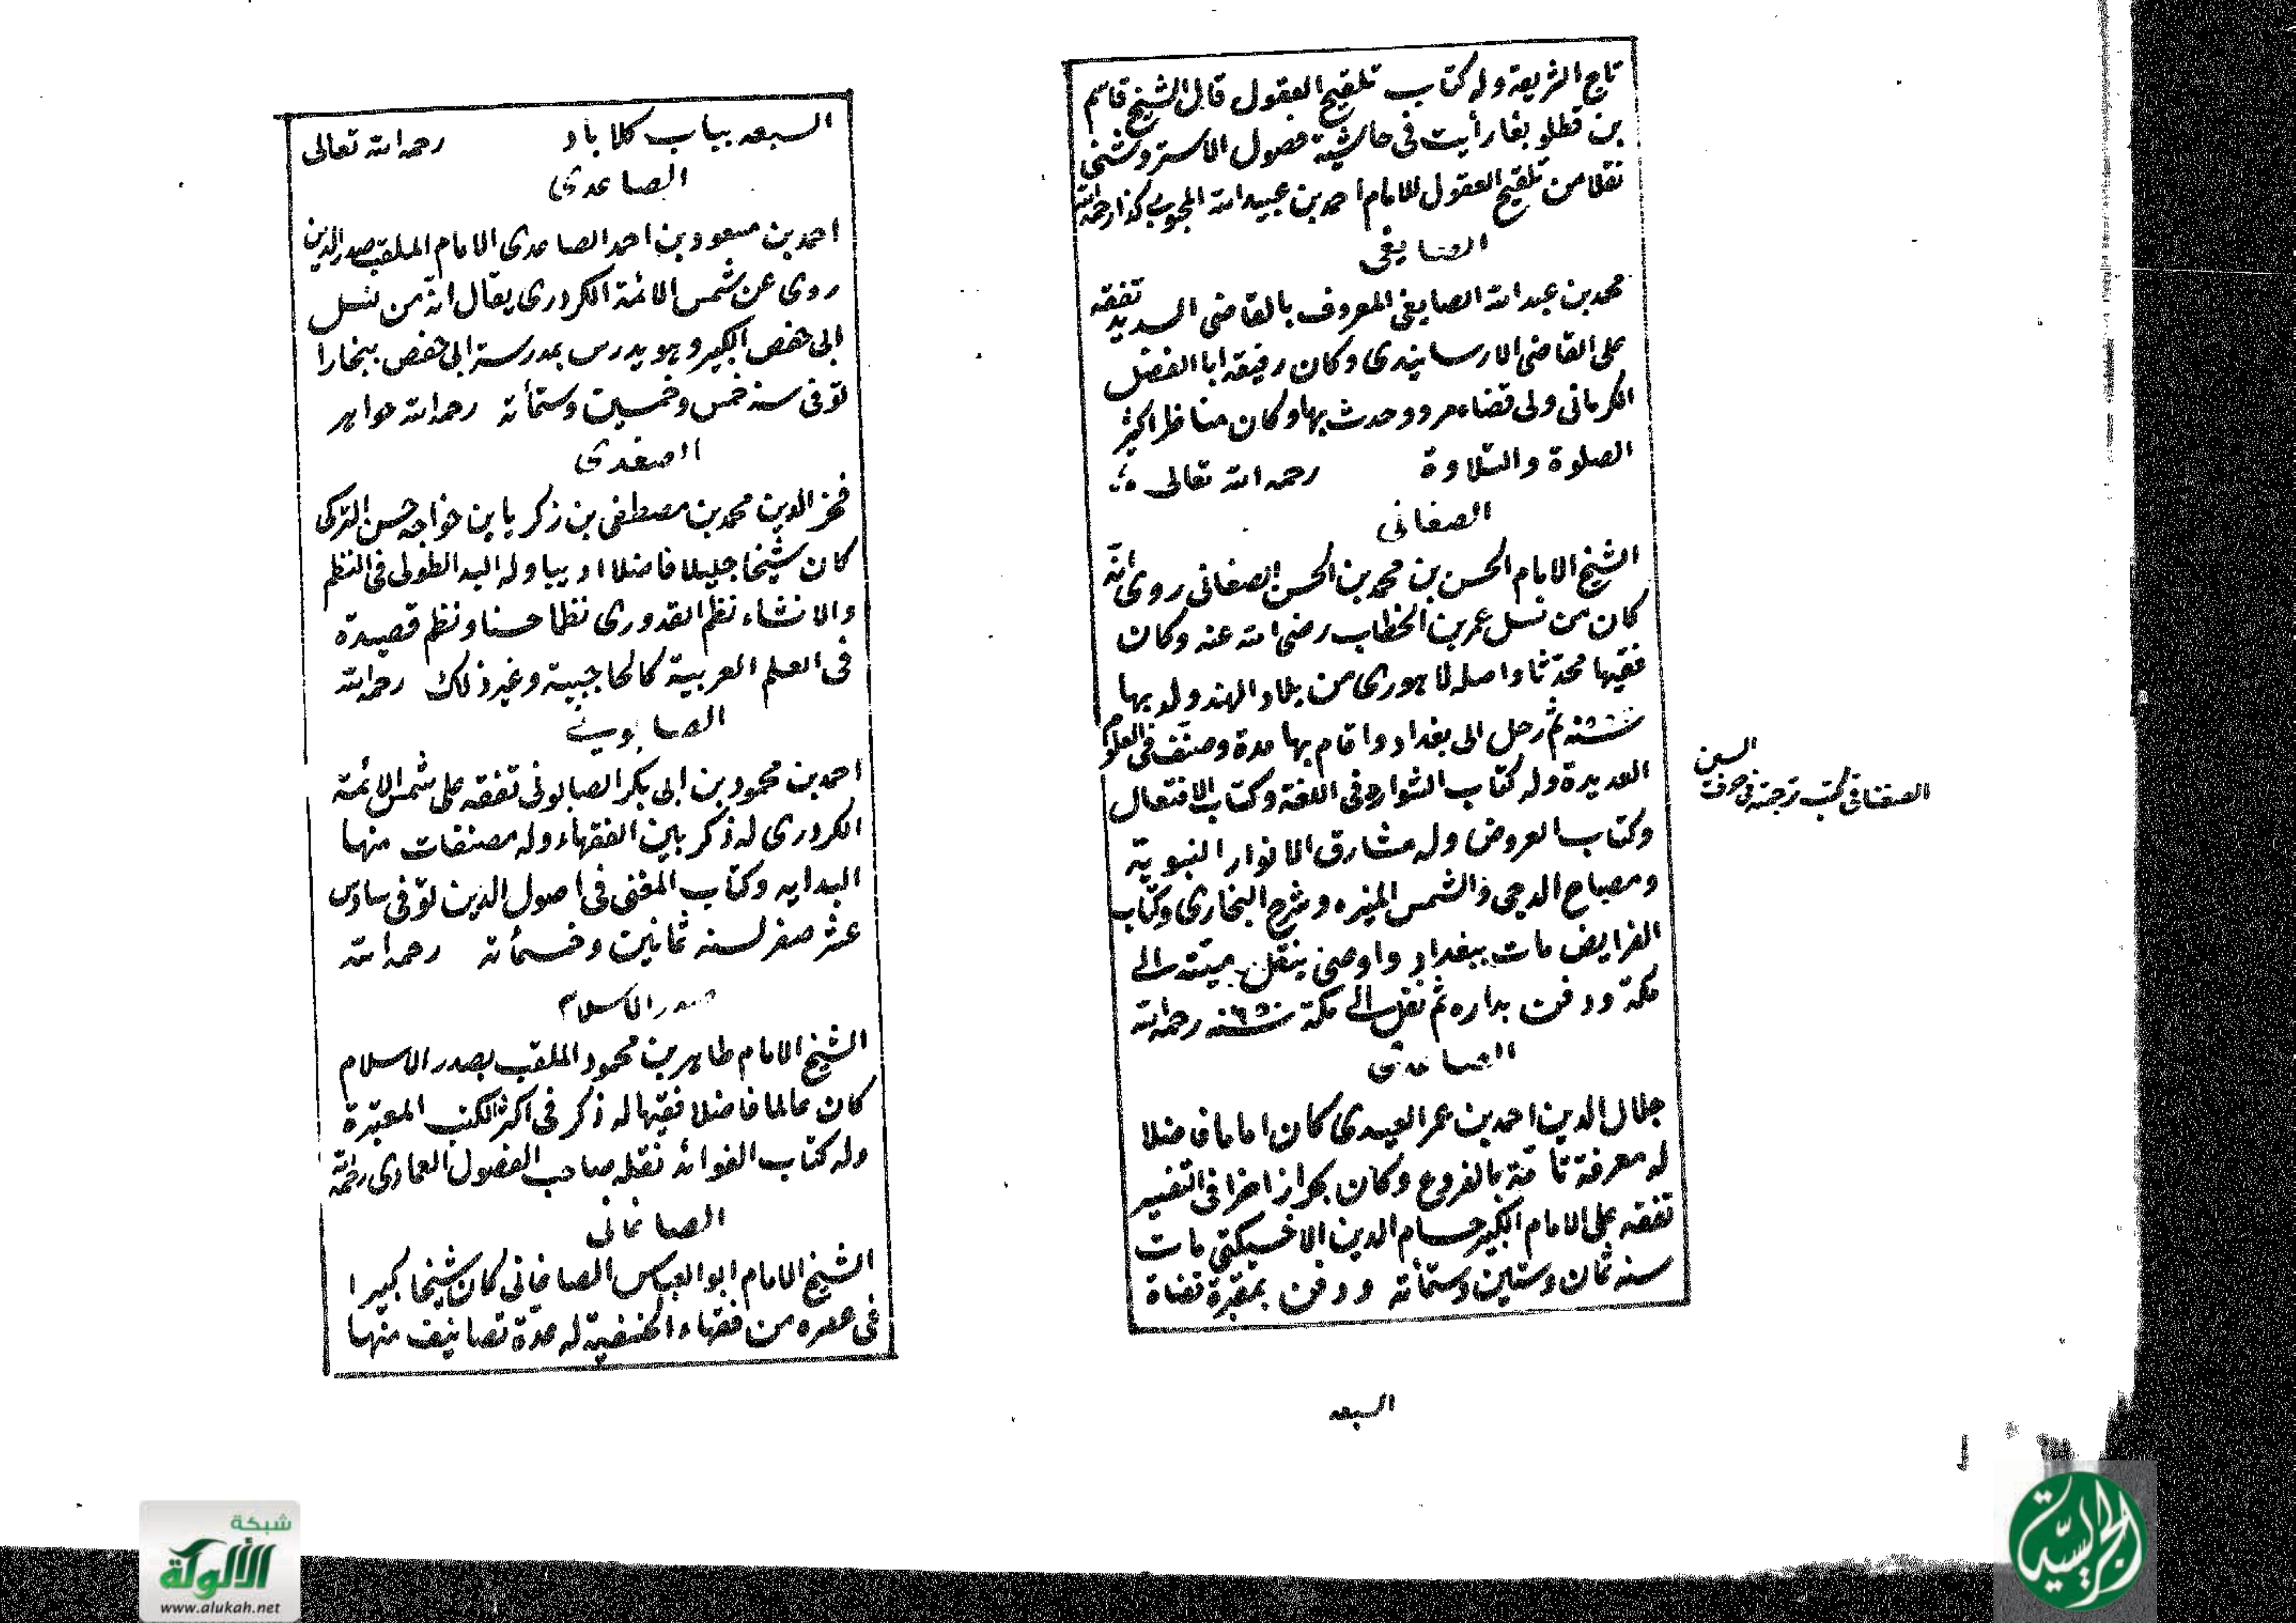 تاج الشريعة وله كتاب تلقيح العقول قال الشيخ قاسم
بن قطلوبغا رأيت في حاشية فصول الاستروشني
نقلا من تلقيح العقول للامام احمد بن عبيد الله المحبوبي كذا رحمه الله
الصايغي
محمد بن عبد الله الصايغي المعروف بالقاضي السديد تفقه
على القاضي الارسابندي وكان رفيقه ابا الفضل
الكرماني ولى قضاء مرو وحدث بها وكان مناظرا كثير
الصلوة والتلاوة رحمه الله تعالى
الصغاني
الشيخ الامام الحسن بن محمد بن الحسن الصغاني روى انه
كان من نسل عمر بن الخطاب رضي الله عنه وكان
فقيها محدثا واصله لاهوري من بلاد الهند ولد بها
سنة ثم رحل الى بغداد واقام بها مدة وصنف في العلوم
العديدة وله كتاب الشوارد في اللغة وكتاب الافتعال
وكتاب العروض وله مشارق الانوار النبوية
ومصباح الدجى والشمس المنيره وشرح البخاري وكتاب
الفرايض مات ببغداد واوصى بنقل ميته الى
مكة ودفن بداره ثم نقل الى مكة سنة ٦٥٠ رحمه الله
الصاعدي
جلال الدين احمد بن عمر العيدي كان اماما فاضلا
له معرفة تامة بالفروع وكان بحرا زاخرا في التفسير
تفقه على الامام الكبير حسام الدين الاخسيكتي مات
سنه ثمان وستين وستمأته ودفن بمقبرة قضاة
السبعه
السين
الصغناقي كتب ترجمته في حرف
السبعه بباب كلاباد رحمه الله تعالى
الصاعدي
احمد بن مسعود بن احمد الصاعدي الامام الملقب صدر الدين
روى عن شمس الائمة الكردري يقال انه من نسل
ابي حفص الكبير وهو يدرس بمدرسة ابي حفص ببخارا
توفى سنه خمس وخمسين وستمأته رحمه الله
الصغدي
فخر الدين محمد بن مصطفى بن زكريا بن خواجه حسن التركي
كان شيخا جليلا فاضلا اديبا وله اليد الطولى في النظم
والانشاء نظم القدوري نظما حسنا ونظم قصيدة
في العلم العربية كالحاجبية وغير ذلك رحمه الله
الصابوني
احمد بن محمود بن ابي بكر الصابوني تفقه على شمس الائمة
الكردري له ذكر بين الفقهاء وله مصنفات منها
البدايه وكتاب المغني في اصول الدين توفى سادس
عشر صفر لسنه ثمانين وخمسمأته رحمه الله
صدر الاسلام
الشيخ الامام طاهر بن محمود الملقب بصدر الاسلام
كان عالما فاضلا فقيها له ذكر في اكثر الكتب المعتبرة
وله كتاب الفوائد نقله صاحب الفصول العمادى رحمه الله
الصاغاني
الشيخ الامام ابو العباس الصاغاني كان شيخا كبيرا
في عصره من فقهاء الحنفية له عدة تصانيف منها
شبكة
الألوكة
www.alukah.net